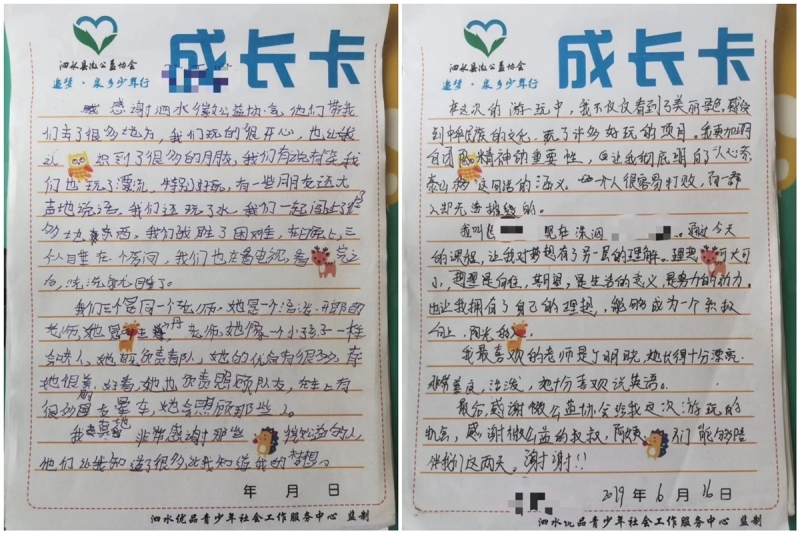 泗水县微公益协会
追梦·泉乡少年行
成长卡
感谢泗水微公益协会,他们带我
们去了很多地方,我们玩的很开心,也让我
认识到了很多的朋友,我们有说有笑,我
们也玩了漂流,特别好玩,有一些朋友还大
声地说话。我们还玩了水,我们一起闯过了
多 东西,我们战胜了困难,在晚上,三
个人睡在一个房间,我们也在看电视,看完之
后,洗洗就睡了。
我们三个是同一个老师,她是一个活泼、开朗的
老师,她是 老师,她像一个小孩子一样
会哄人,她既负责看队,她的优点有很多,
地很 她也负责照顾队友,在车上有
很多朋友晕车,她会照顾那些人。
我真地非常感谢那些 微公益的人,
他们让我知道了很多,让我知道我的梦想。
年 月 日
泗水优品青少年社会工作服务中心 监制
泗水县微公益协会
追梦·泉乡少年行
成长卡
在这次的游玩中,我不仅仅看到了美丽景色,感受
到中华民族的文化,玩了许多好玩的项目。我更加明
白团队精神的重要性,也让我彻底明白了“人心齐,
泰山移”这句话的含义,一个人很容易打败,而一群
人却无法摧毁的。
我叫 现在泗泗 。通过今天
的课程,让我对梦想有了另一层的理解。理想可大可
小,想理是向往,期望,是生活的意义,是努力的动力。
也让我拥有了自己的理想,能够成为一个积极
向上,阳光的
我最喜欢的老师是丁明晓,她长得十分漂亮,
非常善良,活泼,她十分喜欢说英语。
最后,感谢微公益协会给我这次游玩的
机会,感谢微公益的叔叔,阿姨们能够陪
伴我们这两天。谢谢!!
2019年6月16日
泗水优品青少年社会工作服务中心 监制